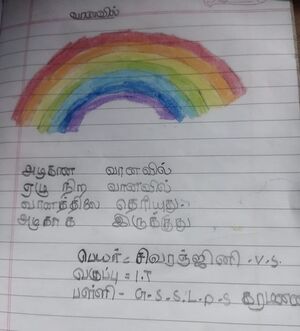 வானவில்
அழகான வானவில்
ஏழு நிற வானவில்
வானத்திலே தெரியுது
அழகாக இருக்குது
பெயர் = சிவரஞ்ஜினி .v.s.
வகுப்பு = 1.T
பள்ளி - G.S.S.L.P.S கரமனை